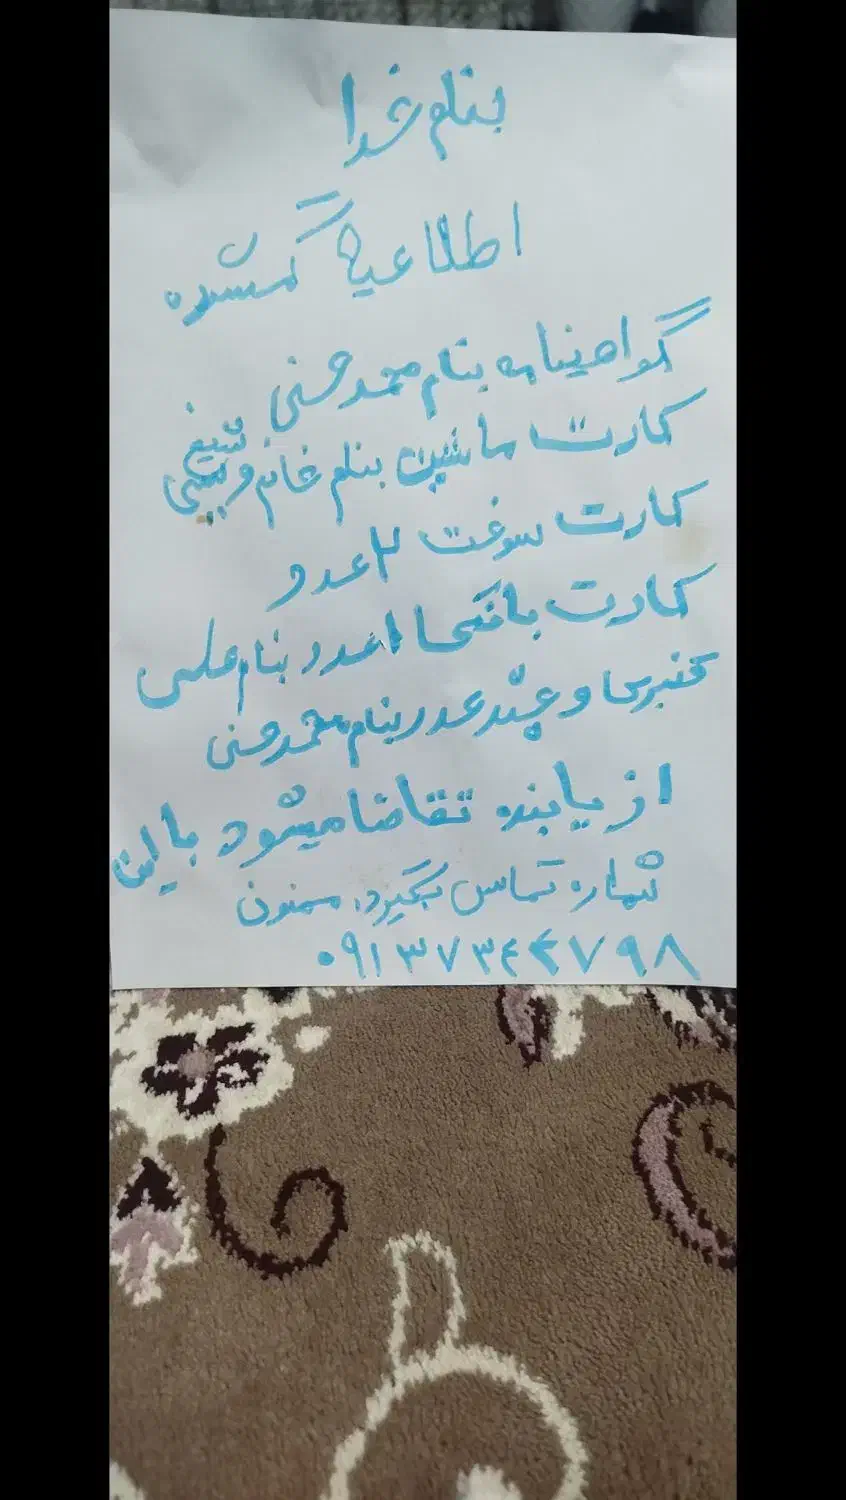 بنام خدا
اطلاعیه گمشده
گواهینامه بنام محمد حسنی
کارت ماشین بنام خانم ویسی
کارت سوخت ۲ عدد
کارت بانکی ۱ عدد بنام علی
و چند عدد بنام محمد حسنی
از یابنده تقاضا میشود با این
شماره تماس بگیرد. ممنون
۰۹۱۳۷۳۴۴۷۹۸